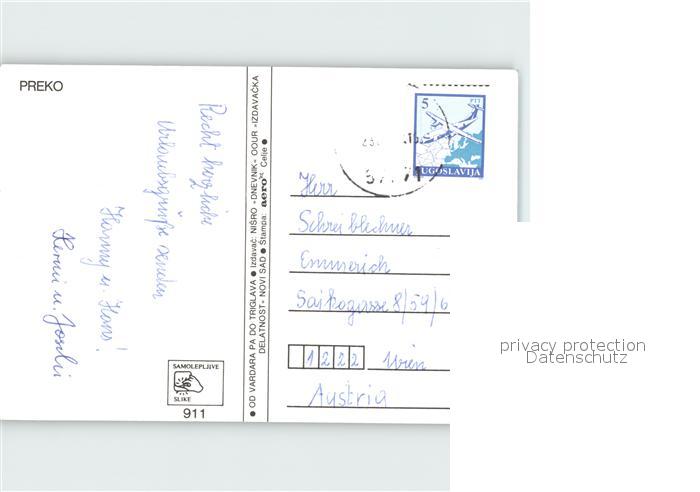 PREKO
Recht herzliche
Urlaubsgrüße senden
Hanny u. Hans!
Hermi u. Joschi
SAMOLEPLJIVE
SLIKE
911
● OD VARDARA PA DO TRIGLAVA ● Izdavač: NIŠRO -DNEVNIK- OOUR -IZDAVAČKA
DELATNOST- NOVI SAD ● Štampa: aero Celje ●
5 PTT
JUGOSLAVIJA
Herr
Schreiblechner
Emmerich
Saikogasse 8/59/6
1222 Wien
Austria
privacy protection
Datenschutz